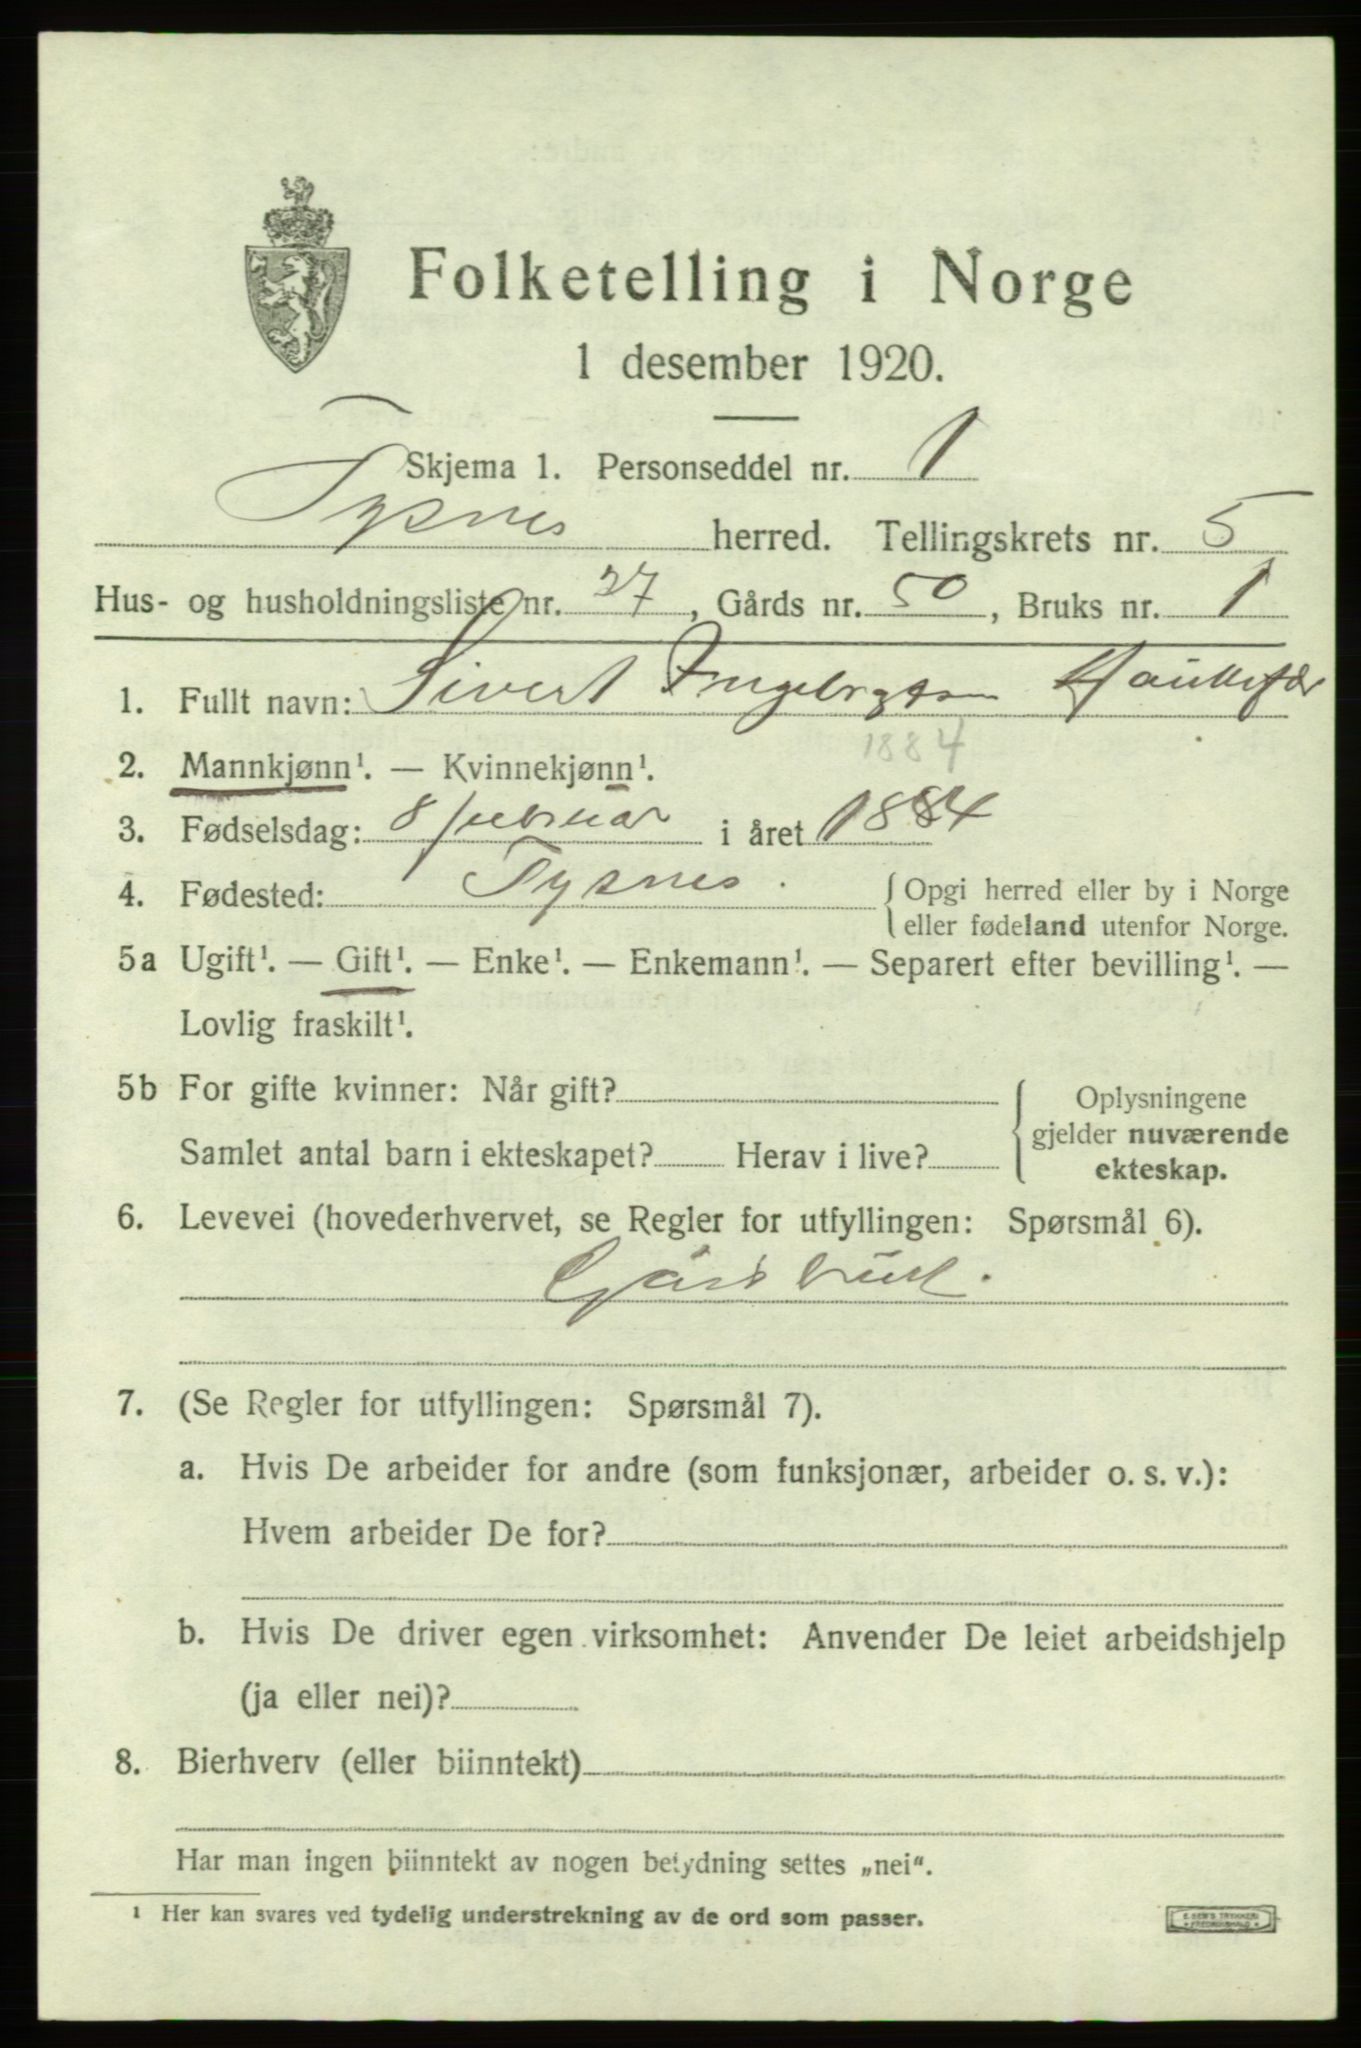 Folketelling i Norge
1 desember 1920.
Skjema 1. Personseddel nr. 1
Tysnes herred. Tellingskrets nr. 5
Hus- og husholdningsliste nr. 27, Gårds nr. 50, Bruks nr. 1
1. Fullt navn: Sivert Ingebrigtsen
1884
2. Mannkjønn¹. — Kvinnekjønn¹.
3. Fødselsdag: 8 februar i året 1884
4. Fødested: Tysnes. { Opgi herred eller by i Norge
eller fødeland utenfor Norge.
5a Ugift¹. — Gift¹. — Enke¹. — Enkemann¹. — Separert efter bevilling¹. —
Lovlig fraskilt¹.
5b For gifte kvinner: Når gift? { Oplysningene
gjelder nuværende
Samlet antal barn i ekteskapet? Herav i live?
ekteskap.
6. Levevei (hovederhvervet, se Regler for utfyllingen: Spørsmål 6).
7. (Se Regler for utfyllingen: Spørsmål 7).
a. Hvis De arbeider for andre (som funksjonær, arbeider o. s. v.):
Hvem arbeider De for?
b. Hvis De driver egen virksomhet: Anvender De leiet arbeidshjelp
(ja eller nei)?
8. Bierhverv (eller biinntekt)
Har man ingen biinntekt av nogen betydning settes „nei“.
¹ Her kan svares ved tydelig understrekning av de ord som passer.